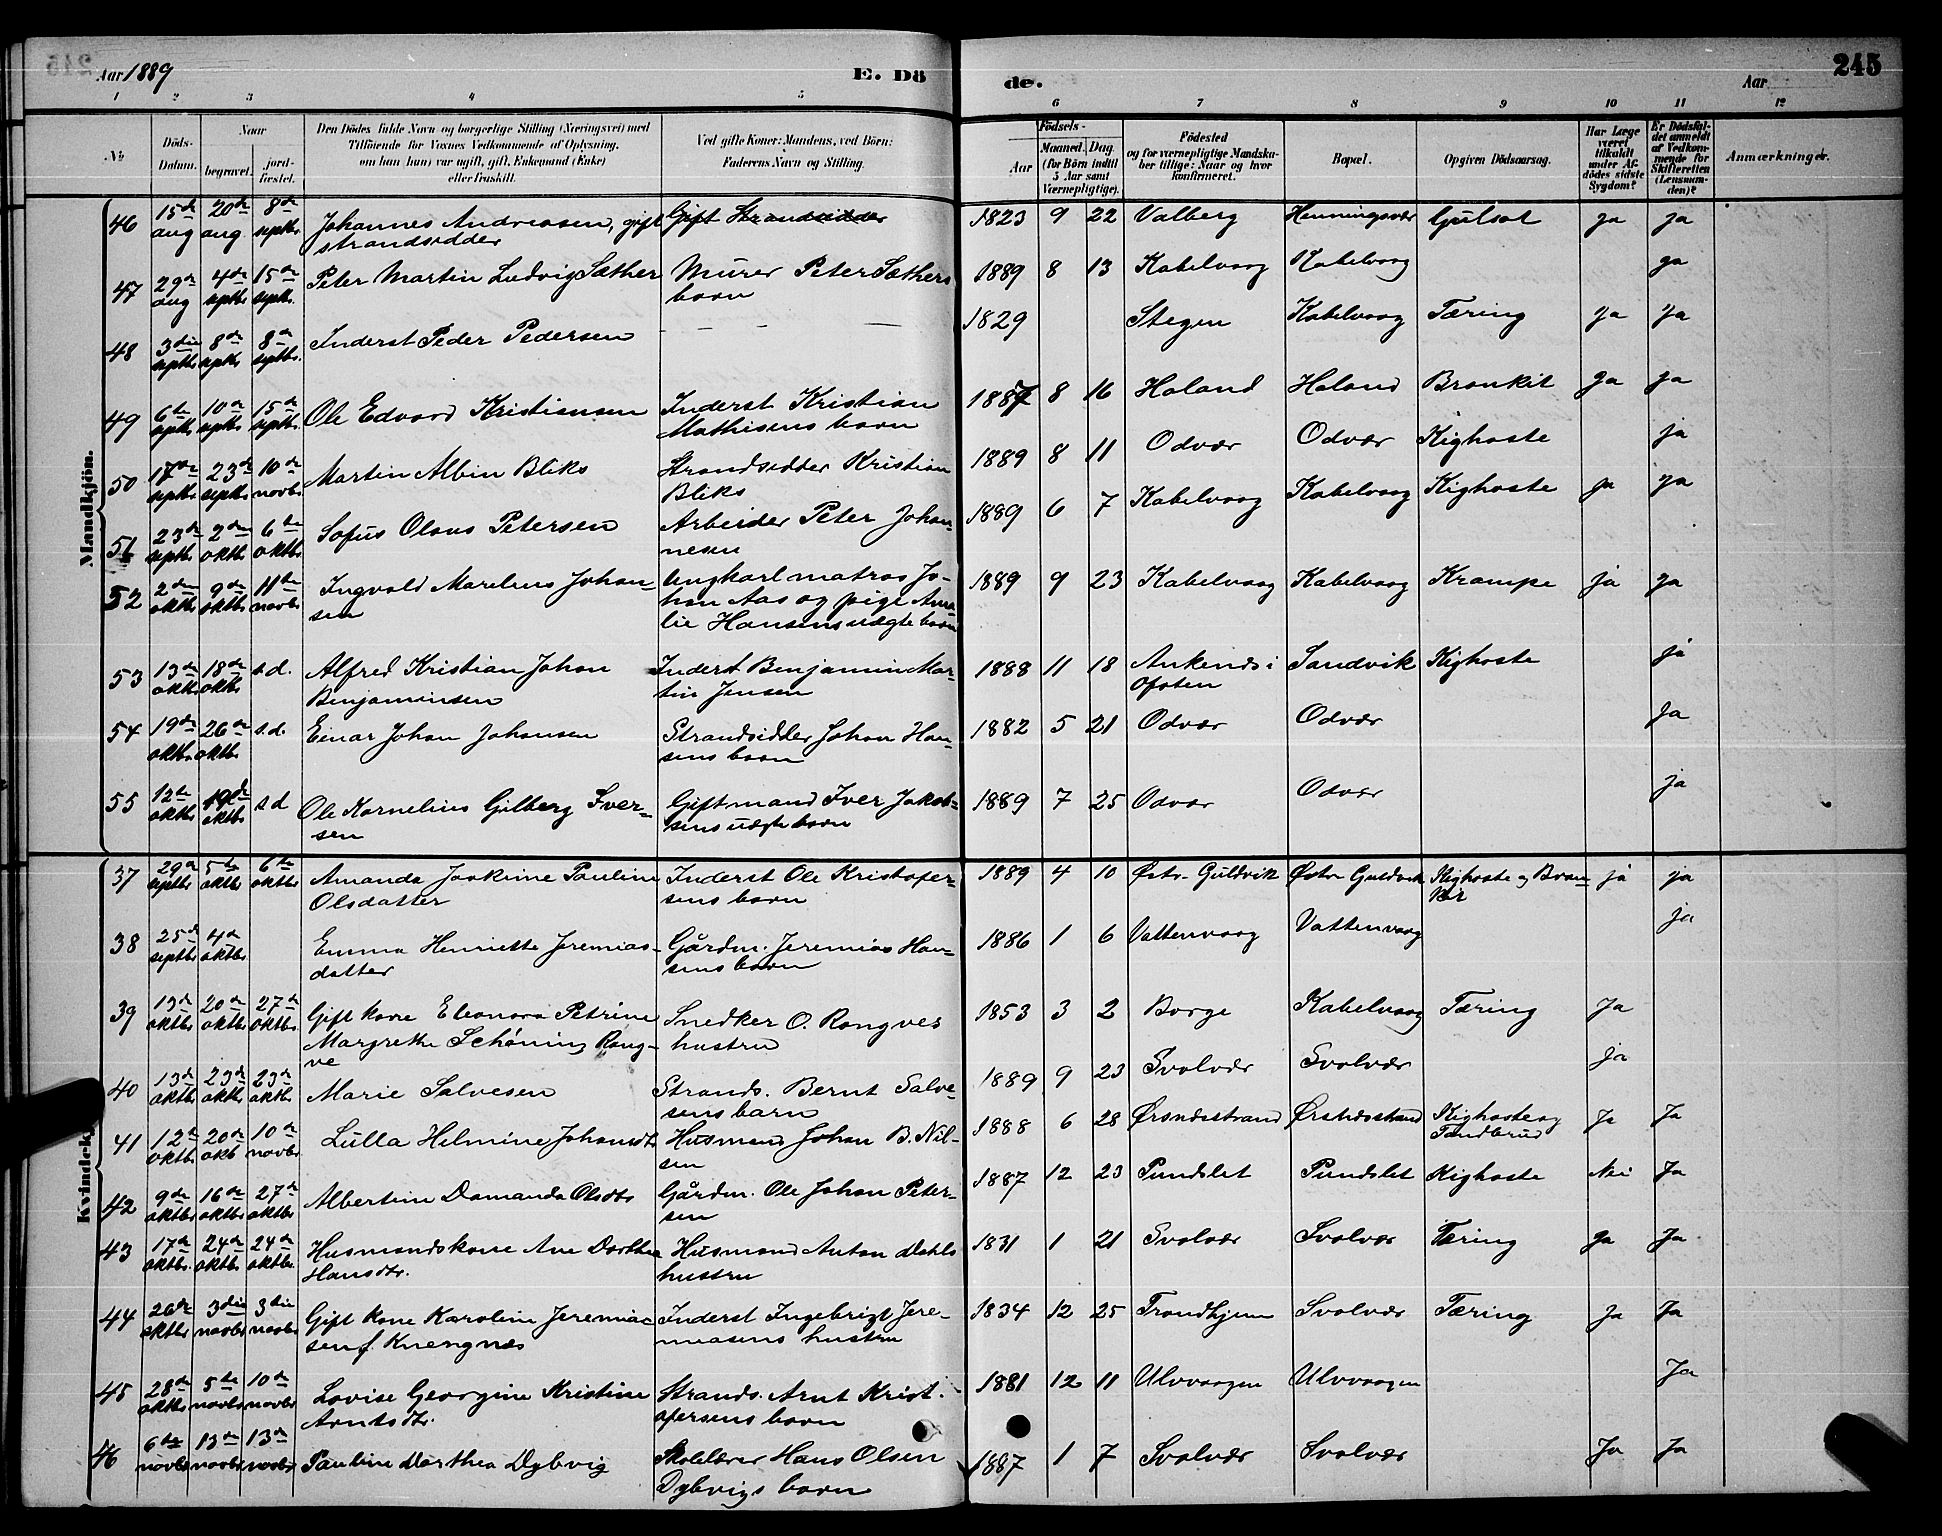 Aar 1889
E. Dö
de.
Aar
245
1 2 3 4 5 6 7 8 9 10 11 12
No
Döds-
Datum.
Naar
begravet.
jord-
fæstet.
Den Dödes fulde Navn og borgerlige Stilling (Næringsvei) med
Tilföiende for Voxnes Vedkommende af Oplysning,
om han (hun) var ugift, gift, Enkemand (Enke)
eller fraskilt.
Ved gifte Koner: Mandens, ved Börn:
Faderens Navn og Stilling.
Födsels-
Aar
Maaned.
Dag.
(for Börn indtil
5 Aar samt
Værnepligtige).
Födested
og for værnepligtige Mandska-
ber tillige: Naar og hvor
konfirmeret.
Bopæl.
Opgiven Dödsaarsag.
Har Læge
været
tilkaldt
under Af-
dödes sidste
Sygdom?
Er Dödsfal-
det anmeldt
af Vedkom-
mende for
Skifteretten
(Lensman-
den)?
Anmærkninger.
Mandkjön.
46 15de aug 20de aug 8de septbr Johannes Andreasen, gift Gift Strandsidder 1823 9 22 Valberg Henningsvær Gulsot ja ja
strandsidder
47 29de aug 4de septbr 15de septbr. Peter Martin Ludvig Sæther Murer Peter Sæthers 1889 8 13 Kabelvaag Kabelvaag ja
barn
48 3die septbr 8de septbr 8de septbr. Inderst Peder Pedersen — — — 1829 Stegen Kabelvaag Tæring ja ja
49 6te septbr 10de septbr 15de septbr Ole Edvard Kristiansen Inderst Kristian 1887 8 16 Holand Holand Bronkit ja ja
Mathisens barn
50 17de septbr 23de septbr 10de novbr Martin Albin Bliks Strandsidder Kristian 1889 8 11 Odvær Odvær Kighoste ja
Bliks
51 23de septbr 2den oktbr 6te oktbr Sofus Olaus Petersen Arbeider Peter Johan- 1889 6 7 Kabelvaag Kabelvaag Kighoste ja ja
nesen
52 2den oktbr 9de oktbr 11te novbr Ingvald Marelius Johan- Ungkarl matros Jo- 1889 9 23 Kabelvaag Kabelvaag Krampe ja ja
sen han Aas og pige Ama-
lie Hansens uægte barn
53 13de oktbr 18de oktbr s.d. Alfred Kristian Johan Inderst Benjamin Mar- 1888 11 18 Ankenes i Sandvik Kighoste ja
Benjaminsen tin Jensen Ofoten
54 19de oktbr. 26de oktbr s.d. Einar Johan Johansen Strandsidder Johan Han- 1882 5 21 Odvær Odvær Ja
sens barn
55 12te oktbr 19de oktbr s d Ole Kornelius Gilberg Iver- Gift mand Iver Jakob- 1889 7 25 Odvær Odvær ja
sen sens uægte barn
Kvindekj
37 29de septbr 5te oktbr 6te oktbr Amanda Joakime Pauline Inderst Ole Kristofer- 1889 4 10 Østr. Guldvik Østr Guldvik Kighoste og Bron- ja ja
Olsdatter sens barn kit
38 25de septbr 4de oktbr Emma Henriette Jeremias- Gårdm. Jeremias Han- 1886 1 6 Vattenvaag Vattenvaag ja
datter sens barn
39 13de oktbr 20de oktbr 27de oktbr. Gift kone Eleonora Petrine Snedker O. Rongves 1853 3 2 Borge Kabelvaag Tæring Ja
Margrethe Schøning Rong- hustru
ve
40 13de oktbr 23de oktbr 23de oktbr. Marie Salvesen Strands. Bernt Salve- 1889 9 23 Svolvær Svolvær ja
sens barn
41 12te oktbr 20de oktb 10de novbr Lulla Helmine Johansdtr Husmand Johan B. Nil- 1888 6 28 Ørsndesstrand Ørsndesstrand Kighoste og Ja Ja
sen Tandbrud
42 9de oktbr 16de oktbr 27de oktbr Albertine Damanda Olsdtr Gårdm. Ole Johan Peter- 1887 12 23 Pundslet Pundslet Kighoste Nei Ja
sen
43 17de oktbr. 24de oktbr 24de oktbr. Husmandskone Ane Dorthea Husmand Anton Dahls 1831 1 21 Svolvær Svolvær Tæring ja Ja
Hansdtr. hustru
44 26de oktbr 3die novbr 3die novbr Gift kone Karoline Jeremias- Inderst Ingebrigt Jere- 1834 12 25 Trondhjem Svolvær Tæring Ja Ja
sen f. Knengnes miasens hustru
45 28de oktbr 5te novbr 10de novbr Lovise Georgine Kristine Strands. Arnt Krist- 1881 12 11 Ulvvaagen Ulvvaagen Ja
Arntsdtr. ofersens barn
46 6te novbr 13de novbr 13de novbr Pauline Dorthea Dybvig Skolelærer Hans Olsen 1887 1 7 Svolvær Svolvær Ja Ja
Dybvigs barn